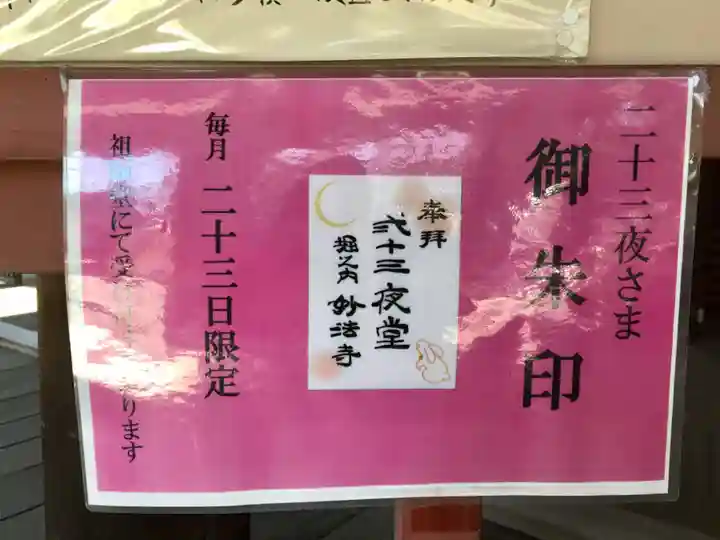 二十三夜さま
御朱印
奉拝
弐十三夜堂
堀之内 妙法寺
毎月 二十三日限定
祖師堂にて受
ります